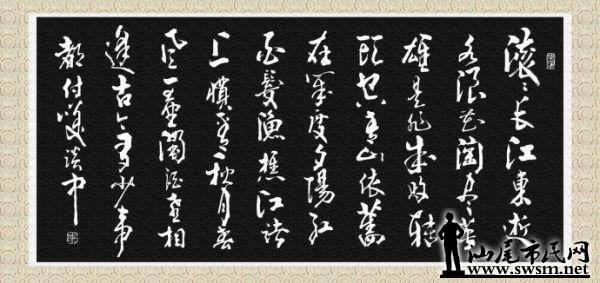 滚〻長江東逝
水浪花淘尽英
雄是非成敗轉
頭空青山依舊
在幾度夕陽紅
白髮漁樵江渚
上慣看秋月春
風一壺濁酒喜相
逢古今多少事
都付笑談中
汕尾市民网
www.swsm.net